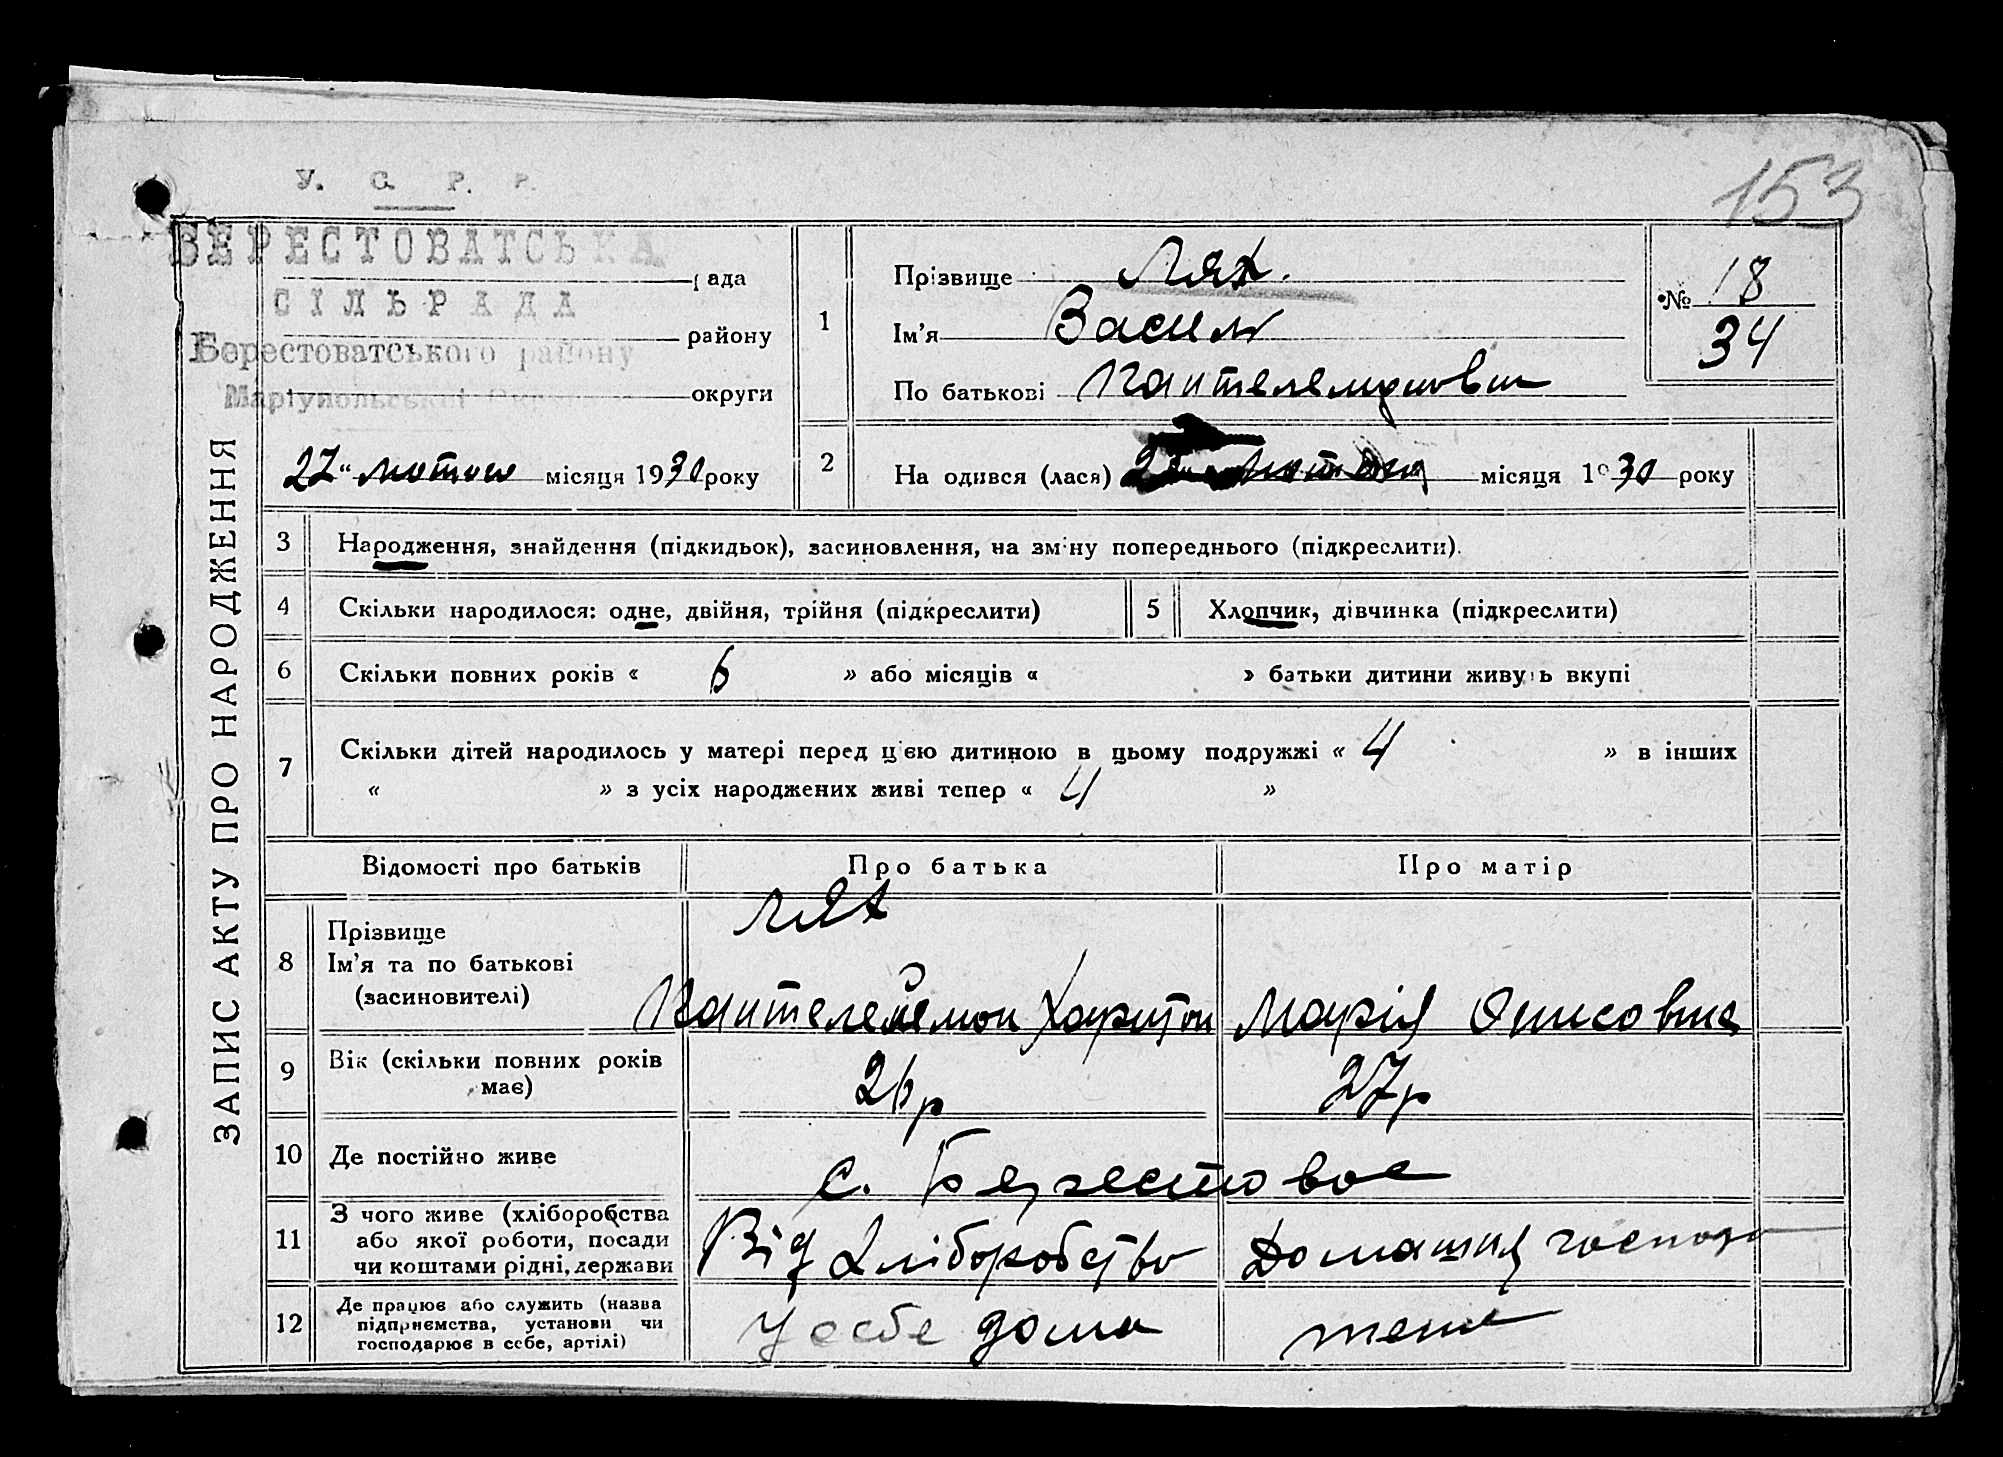 153
У. С. Р. Р.
БЕРЕСТОВАТСЬКА
рада
СІЛЬРАДА
району
Берестоватського району
Маріупольської Округи
округи
27 " лютого місяця 1930 року
ЗАПИС АКТУ ПРО НАРОДЖЕННЯ
1
Прізвище Лях.
Ім'я Василь
По батькові
№ 18
34
2
На одився (лася) місяця 1930 року
3 Народження, знайдення (підкидьок), засиновлення, на зміну попереднього (підкреслити).
4 Скільки народилося: одне, двійня, трійня (підкреслити)
5 Хлопчик, дівчинка (підкреслити)
6 Скільки повних років « 6 » або місяців « » батьки дитини живуть вкупі
7 Скільки дітей народилось у матері перед цією дитиною в цьому подружжі « 4 » в інших
« » з усіх народжених живі тепер « 4 »
Відомості про батьків Про батька Про матір
8 Прізвище
Ім'я та по батькові
(засиновителі)
Лях
Харитон
Марія
9 Вік (скільки повних років
має)
26 р
27 р
10 Де постійно живе
с. Берестовое
11 З чого живе (хліборобства
або якої роботи, посади
чи коштами рідні, держави
Від хліборобство
Домашня господа
12 Де працює або служить (назва
підприємства, установи чи
господарює в себе, артілі)
У себе дома
теше